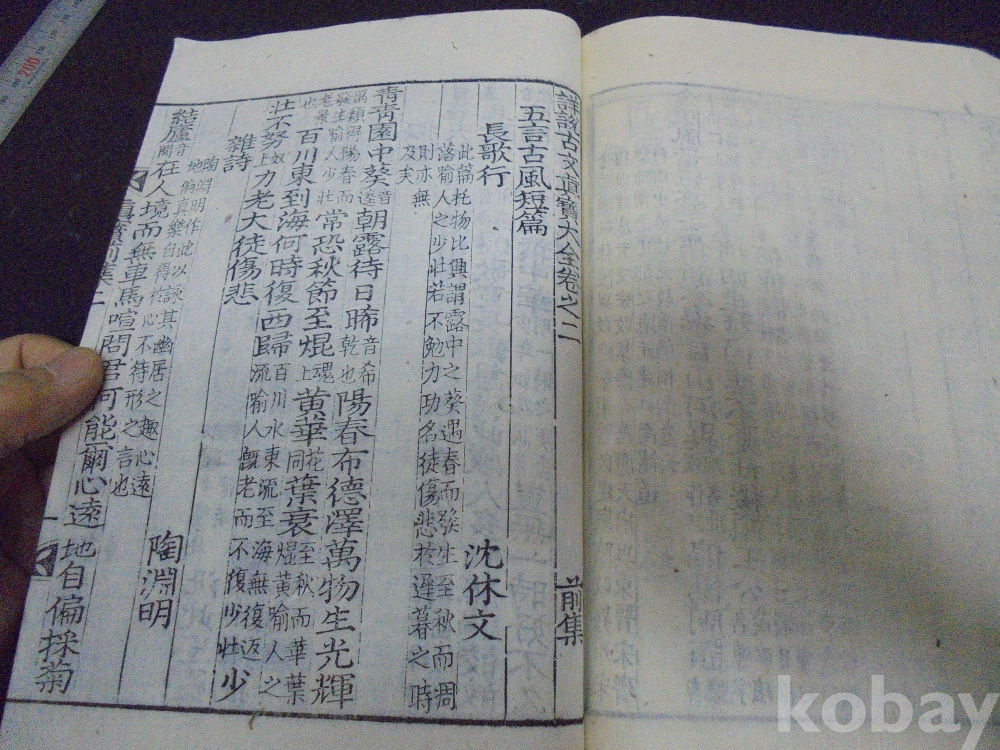 詳說古文眞寶大全卷之二 前集
五言古風短篇
長歌行 沈休文
此篇托物比興謂露中之葵遇春而發生至秋而凋
落喻人之少壯若不勉力功名徒傷悲於遲暮之時
則亦無
及矣
青靑園中葵音逵朝露待日晞音希乾也陽春布德澤萬物生光輝
萬類得陽春而
發生喻人少壯
也老景常恐秋節至焜魂上黃華花同葉衰至秋而華葉焜黃喻人之
百川東到海何時復西歸百川水東流至海無復返流喻人旣老而不復少壯少
壯不努奴上力老大徒傷悲
雜詩 陶淵明
陶淵明作此以詠其幽居之趣心遠
地偏眞樂自得於心不待形之言也
結廬音閭在人境而無車馬喧問君何能爾心遠地自偏採菊
眞寶前集二 一
200
kobay